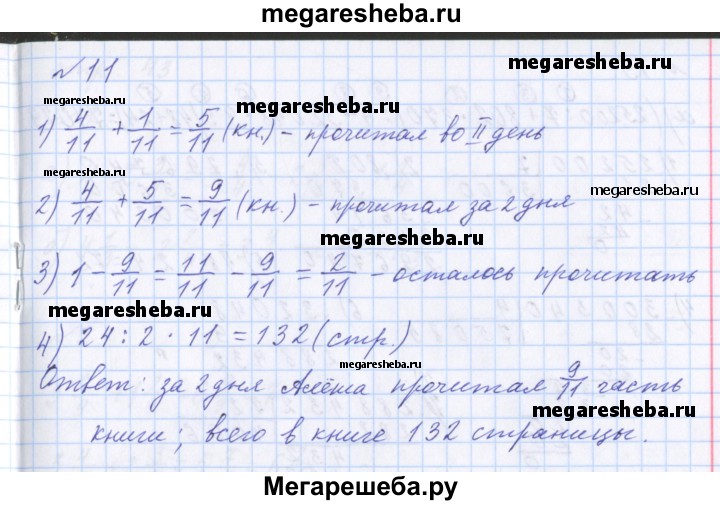 megaresheba.ru
№11
megaresheba.ru megaresheba.ru
1) 4/11 + 1/11 = 5/11 (кн.) - прочитал во II день
megaresheba.ru
2) 4/11 + 5/11 = 9/11 (кн.) - прочитал за 2 дня
megaresheba.ru
3) 1 - 9/11 = 11/11 - 9/11 = 2/11 - осталось прочитать
megaresheba.ru
4) 24 : 2 · 11 = 132 (стр.)
megaresheba.ru
Ответ: за 2 дня Алёша прочитал 9/11 часть
megaresheba.ru
книги; всего в книге 132 страницы.
megaresheba.ru
Мегарешеба.ру